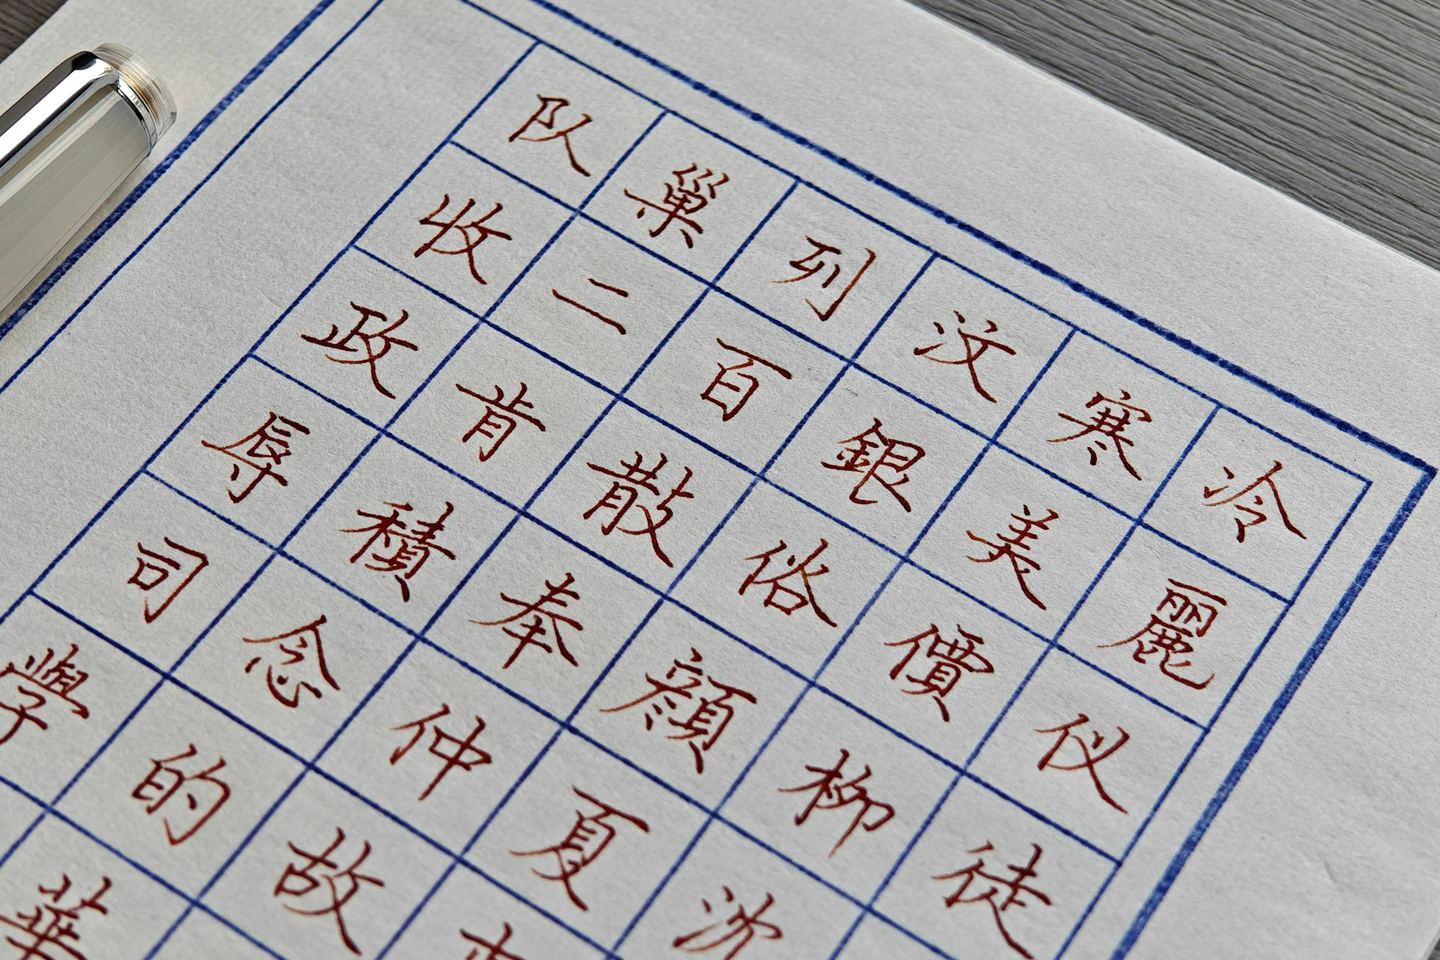 队巢列汶寒冷
收二百銀美麗
政肯散俗價仪
辱積奉顏柳徒
司念仲夏沈
學的故
華